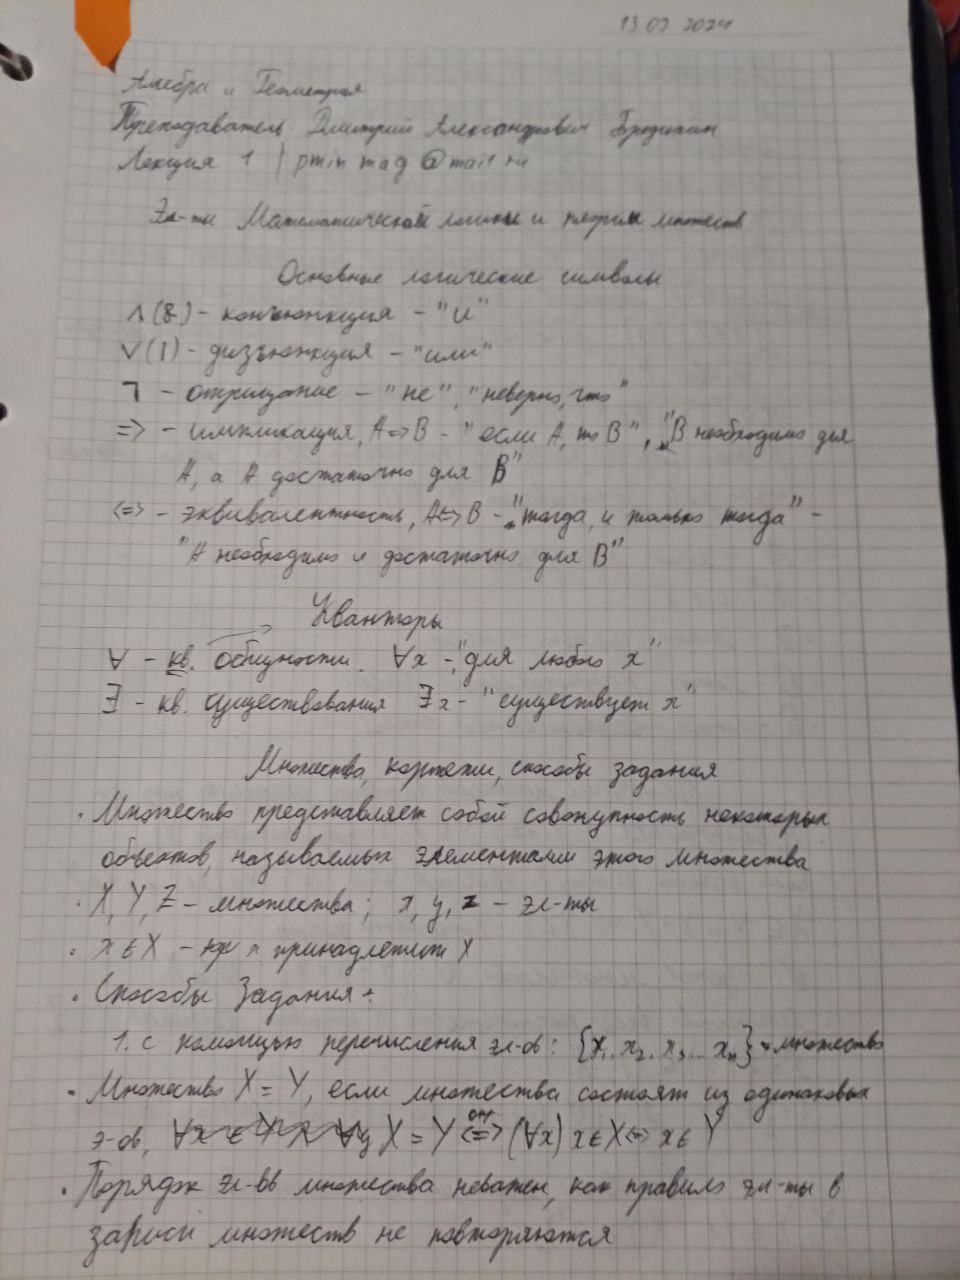 13 02 2024
Алгебра и Геометрия
Преподаватель: Дмитрий Александрович
Лекция 1 | pmin mag @mail.ru
Эл-ты Математической логики и теории множеств
Основные логические символы
∧(&) - конъюнкция - "и"
∨(|) - дизъюнкция - "или"
¬ - отрицание - "не", "неверно, что"
=> - импликация, A=>B - "если A, то B", "B необходимо для
A, а A достаточно для B"
<=> - эквивалентность, A<=>B - "тогда, и только тогда" -
"A необходимо и достаточно для B"
Кванторы
∀ - кв. общности. ∀x - "для любого x"
∃ - кв. существования ∃x - "существует x"
Множества, кортежи, способы задания
· Множество представляет собой совокупность некоторых
объектов, называемых элементами этого множества
· X, Y, Z - множества; x, y, z - эл-ты
· x ∈ X - x принадлежит X
· Способы задания:
1. с помощью перечисления эл-ов: {x₁, x₂, x₃... xₙ} - множество
· Множество X = Y, если множества состоят из одинаковых
э-ов, X = Y <=> (∀x) x∈X <=> x∈Y
опр
· Порядок эл-вв множества неважен, как правило эл-ты в
записи множеств не повторяются